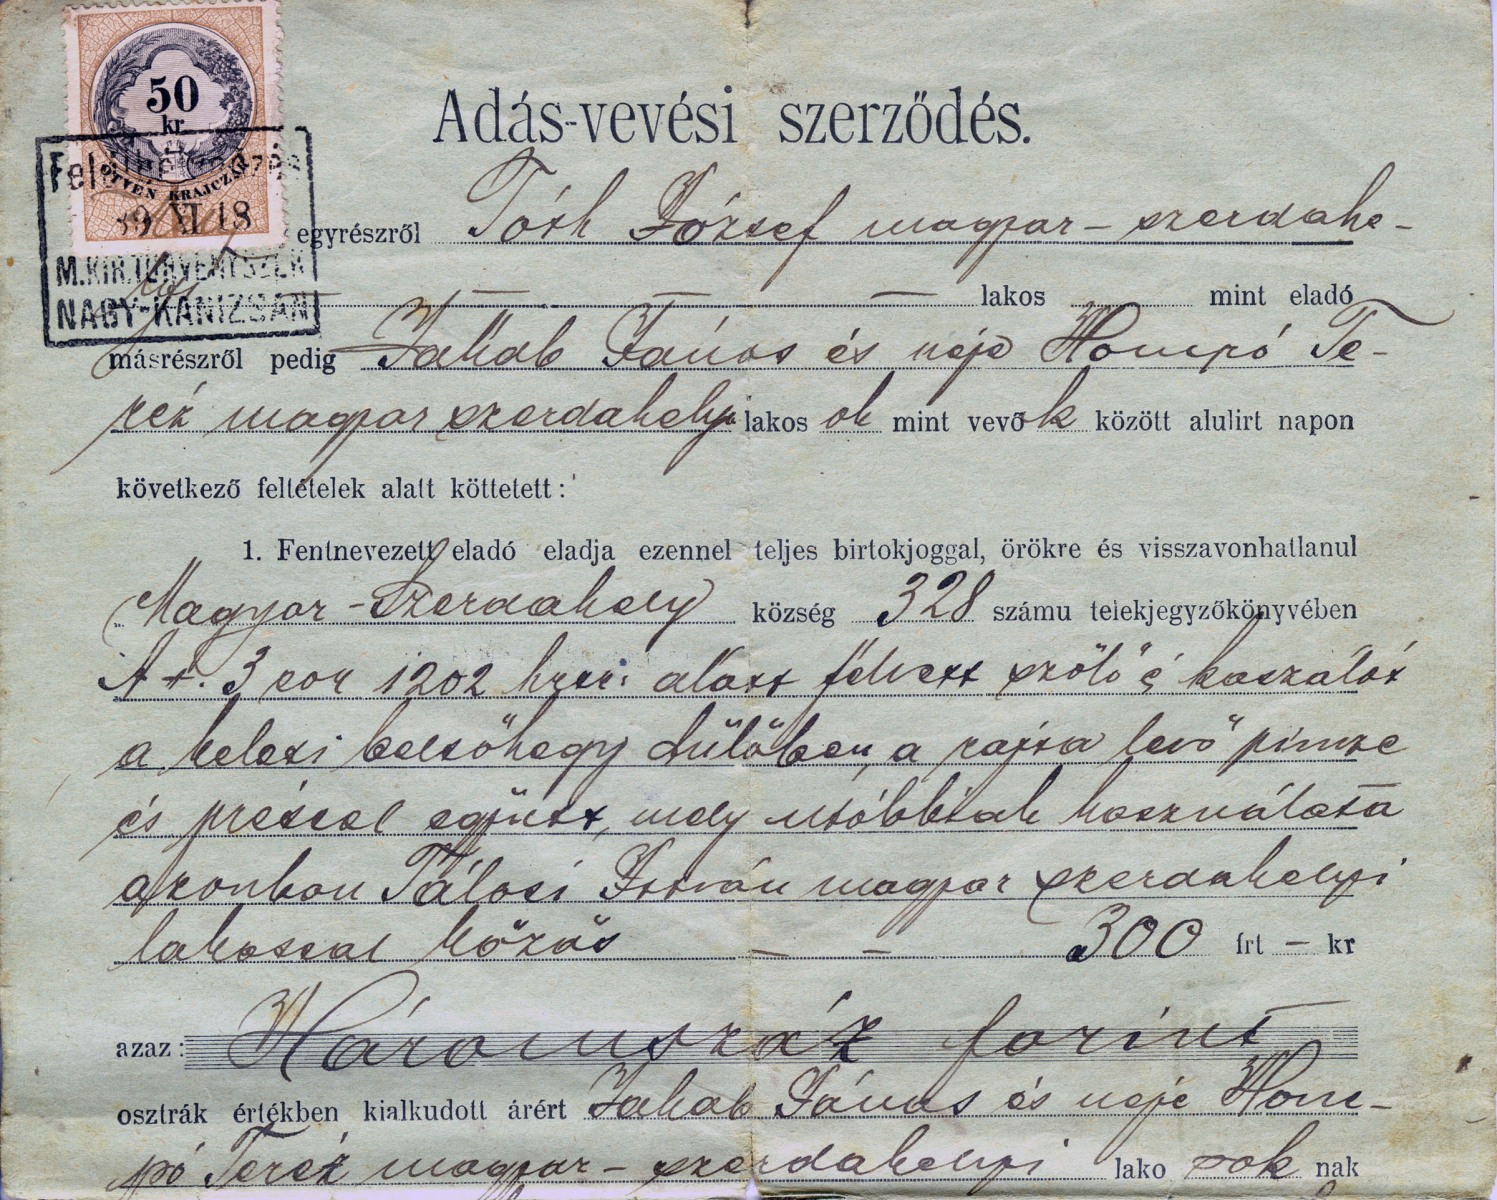 50
kr.
ÖTVEN KRAJCZÁR
89 XI 18
M.KIR.TÖRVÉNYSZÉK
NAGY-KANIZSÁN
Adás-vevési szerződés.
egyrészről Tóth József magyar-szerdahe-
lyi — — — lakos mint eladó
másrészről pedig Jakab János és neje Hompó Te-
réz magyar szerdahelyi lakos ok mint vevő k között alulirt napon
következő feltételek alatt köttetett:
1. Fentnevezett eladó eladja ezennel teljes birtokjoggal, örökre és visszavonhatlanul
Magyar-Szerdahely község 328 számu telekjegyzőkönyvében
A +. 3 sor 1202 hrsz: alatt felvett szőlő s kaszálót
a kelesi belsőhegy dűlőben, a rajta levő pincze
és préssel együtt, mely utóbbiak használata
azonban Tálosi István magyar szerdahelyi
lakossal közös — — 300 frt — kr
azaz: Háromszáz forint
osztrák értékben kialkudott árért Jakab János és neje Hom-
pó Teréz magyar-szerdahelyi lako sok nak